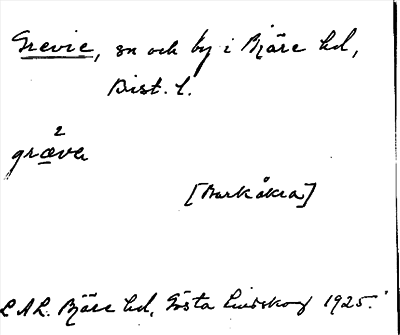 Grevie, sn och by i Bjäre hd,
Krist. l.
2
græva
[Barkåkra]
L A L. Bjäre hd, Gösta Lindskog 1925.